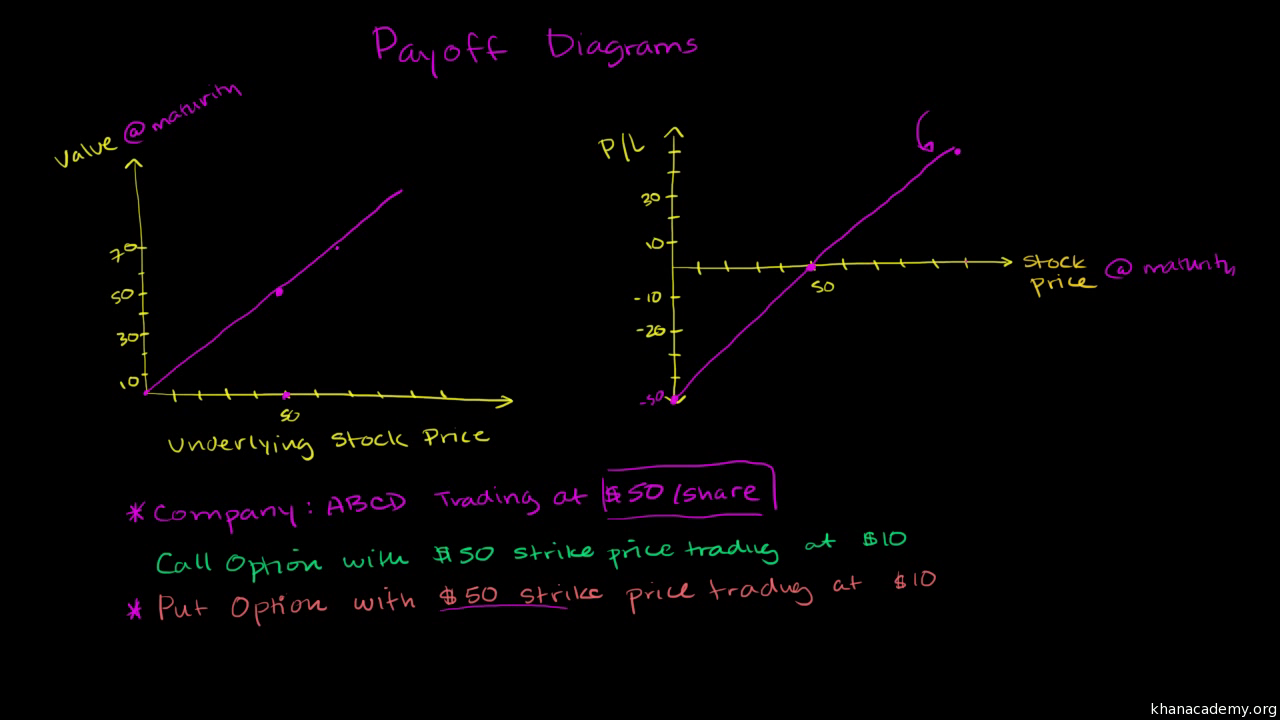 Payoff Diagrams
Value @ maturity
70
50
30
10
50
Underlying Stock Price
P/L
30
10
-10
-20
-50
50
Stock Price @ maturity
* Company: ABCD Trading at $50/share
Call Option with $50 strike price trading at $10
* Put Option with $50 strike price trading at $10
khanacademy.org